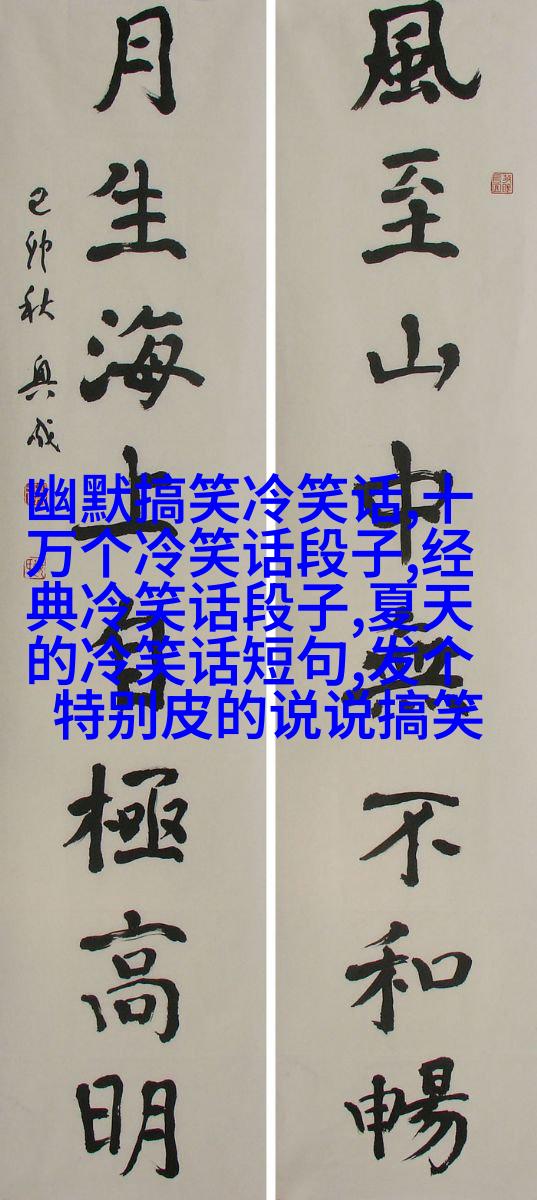 風至山中無不和暢
月生海上自極高明
己卯秋 興成
幽默搞笑冷笑话,十
万个冷笑话段子,经
典冷笑话段子,夏天
的冷笑话短句,发个
特别皮的说说搞笑